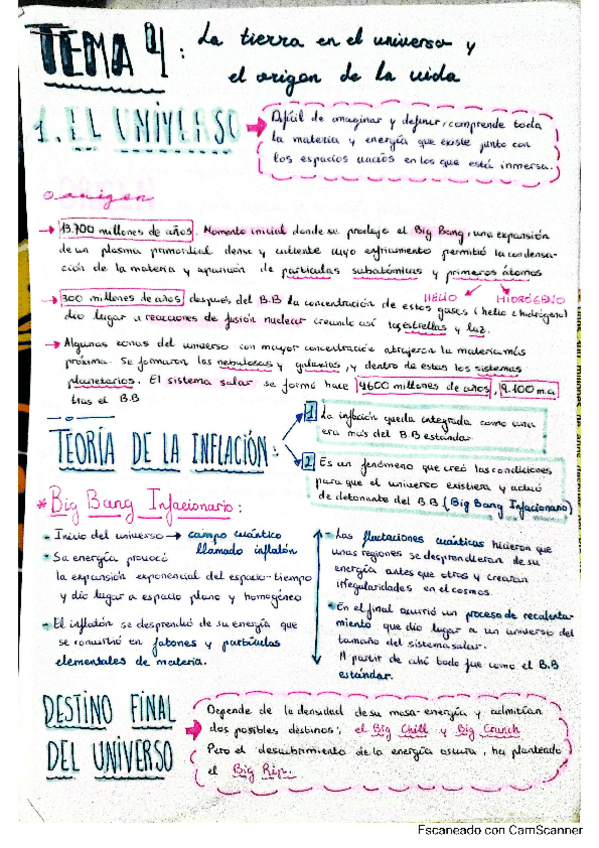 TEMA 4: La tierra en el universo y
el origen de la vida
1. EL UNIVERSO
Difícil de imaginar y definir, comprende toda
la materia y energía que existe junto con
los espacios vacíos en los que está inmersa.
origen
13.700 millones de años. Momento inicial donde se produjo el Big Bang, una expansión
de un plasma primordial denso y caliente cuyo enfriamiento permitió la condensa-
ción de la materia y aparición de partículas subatómicas y primeros átomos
HELIO HIDRÓGENO
300 millones de años después del B.B la concentración de estos gases (helio e hidrógeno)
dio lugar a reacciones de fusión nuclear creando así las estrellas y luz.
Algunas zonas del universo con mayor concentración atrajeron la materia más
próxima. Se formaron las nebulosas y galaxias, y dentro de estas los sistemas
planetarios. El sistema solar se formó hace 4600 millones de años, 9.100 m.a
tras el B.B
TEORÍA DE LA INFLACIÓN:
1 La inflación queda integrada como una
era más del B.B estándar.
2 Es un fenómeno que creó las condiciones
para que el universo existiera y actuó
de detonante del B.B (Big Bang Infacionario)
* Big Bang Infacionario:
- Inicio del universo → campo cuántico
llamado inflatón
- Su energía provocó
la expansión exponencial del espacio-tiempo
y dio lugar a espacio plano y homogéneo
- El inflatón se desprendió de su energía que
se convirtió en fotones y partículas
elementales de materia.
- Las fluctaciones cuánticas hicieron que
unas regiones se desprendieran de su
energía antes que otros y crearan
irregularidades en el cosmos.
- En el final ocurrió un proceso de recalenta-
miento que dio lugar a un universo del
tamaño del sistema solar.
A partir de ahí todo fue como el B.B
estándar.
DESTINO FINAL
DEL UNIVERSO
Depende de la densidad de su masa-energía y admitían
dos posibles destinos; el Big Chill y Big Crunch
Pero el descubrimiento de la energía oscura, ha planteado
el Big Rip.
Escaneado con CamScanner